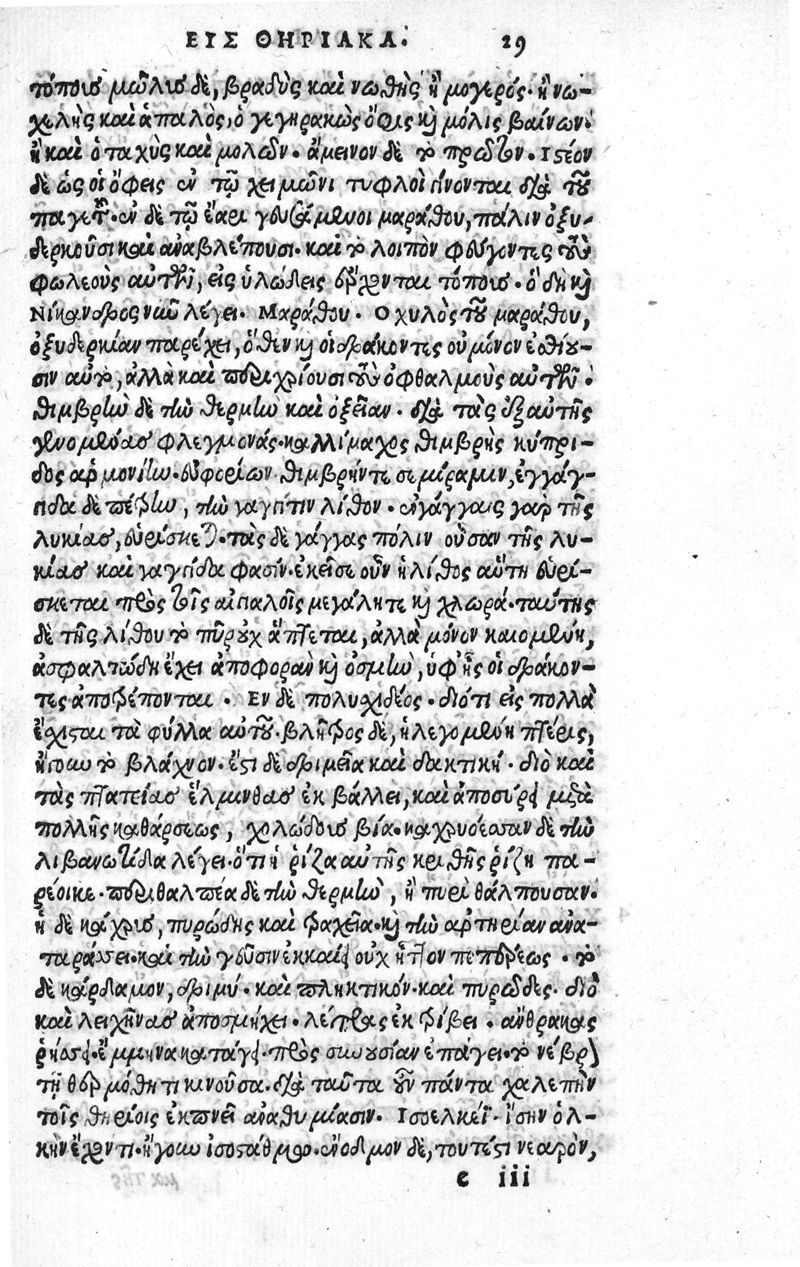 ΕΙΣ ΘΗΡΙΑΚΑ. 29
τόποις μῶλυς δὲ, βραδὺς καὶ νωθὴς ἢ μογερός· ἢ νω-
χελὴς καὶ ἁπαλὸς, ὁ γεγηρακὼς ὄφις κ̀ μόλις βαίνων·
ἢ καὶ ὁ ταχὺς καὶ μολών. ἄμεινον δὲ τὸ πρῶτον. Ιστέον
δὲ ὡς οἱ ὄφεις ἐν τῷ χειμῶνι τυφλοὶ γίνονται διὰ τοῦ
παγετοῦ. ἐν δὲ τῷ ἔαρι γευσάμενοι μαράθου, πάλιν ὀξυ-
δερκοῦσι καὶ ἀναβλέπουσι. καὶ τὸ λοιπὸν φεύγοντες τοὺς
φωλεοὺς αὐτῶν, εἰς ὑλώδεις ἔρχονται τόπους. ὃ δὴ κ̀
Νίκανδρος νῦν λέγει. Μαράθου. Ο χυλὸς τοῦ μαράθου,
ὀξυδερκίαν παρέχει, ὅθεν κ̀ οἱ δράκοντες οὐ μόνον ἐσθίου-
σιν αὐτὸ, ἀλλὰ καὶ περιχρίουσι τοὺς ὀφθαλμοὺς αὐτῶν.
θιμβρὴν δὲ τὴν θερμὴν καὶ ὀξεῖαν. διὰ τὰς ἐξ αὐτῆς
γενομένας φλεγμονάς. καλλίμαχος θιμβρῆς κύπρι-
δος ἁρμονίην. εὐφορίων θιμβρήν τε σεμίραμιν, ἐγγάγ-
γιδα δὲ πέζην, τὴν γαγγῖτιν λίθον. ἐν γάγγαις γὰρ τῆς
λυκίας, εὑρίσκεται. τὰς δὲ γάγγας πόλιν οὖσαν τῆς λυ-
κίας καὶ γαγγίδα φασίν. ἐκεῖσε οὖν ἡ λίθος αὕτη εὑρί-
σκεται πρὸς τοῖς αἰγιαλοῖς μεγάλη τε κ̀ χλωρά. ταύτης
δὲ τῆς λίθου τὸ πῦρ οὐχ ἅπτεται, ἀλλὰ μόνον καιομένη,
ἀσφαλτώδη ἔχει ἀποφορὰν κ̀ ὀσμὴν, ὑφ' ἧς οἱ δράκον-
τες ἀποτρέπονται. Εν δὲ πολυχιδέος. διότι εἰς πολλὰ
ἔχισται τὰ φύλλα αὐτοῦ. βλῆτρος δὲ, ἡ λεγομένη πτέρις,
ἤγουν τὸ βλάχνον. ἔστι δὲ δριμεῖα καὶ δακτική. διὸ καὶ
τὰς πλατείας ἕλμινθας ἐκβάλλει, καὶ ἀποσύρει μετὰ
πολλῆς καθάρσεως, χολώδους βία. καχρυόεσσαν δὲ τὴν
λιβανωτίδα λέγει. ὅτι ἡ ῥίζα αὐτῆς κριθῆς ῥίζῃ πα-
ρέοικε. περιθαλπέα δὲ τὴν θερμὴν, ἢ πυρὶ θάλπουσαν.
ἡ δὲ κάχρυς, πυρώδης καὶ τραχεῖα. κ̀ τὴν ἀρτηρίαν ἀνα-
ταράσσει. καὶ τὴν γεῦσιν ἐκκαίει οὐχ ἧττον πεπέρεως. τὸ
δὲ κάρδαμον, δριμύ. καὶ πληκτικόν. καὶ πυρῶδες. διὸ
καὶ λειχῆνας ἀποσμήχει. λέπρας ἐκτρίβει. ἄνθρακας
ῥήσσει. ἔμμηνα κατάγει. πρὸς συνουσίαν ἐπάγει. τὸ νεῦρον
τῇ θερμότητι κινοῦσα. διὰ ταῦτα οὖν πάντα χαλεπὴν
τοῖς θηρίοις ἐκπνεῖ ἀναθυμίασιν. Ισοελκεῖ. ἴσην ὁλ-
κὴν ἔχοντι. ἤγουν ἰσοστάθμῳ. ἐνόδμον δὲ, τουτέστι νεαρὸν,
e iii